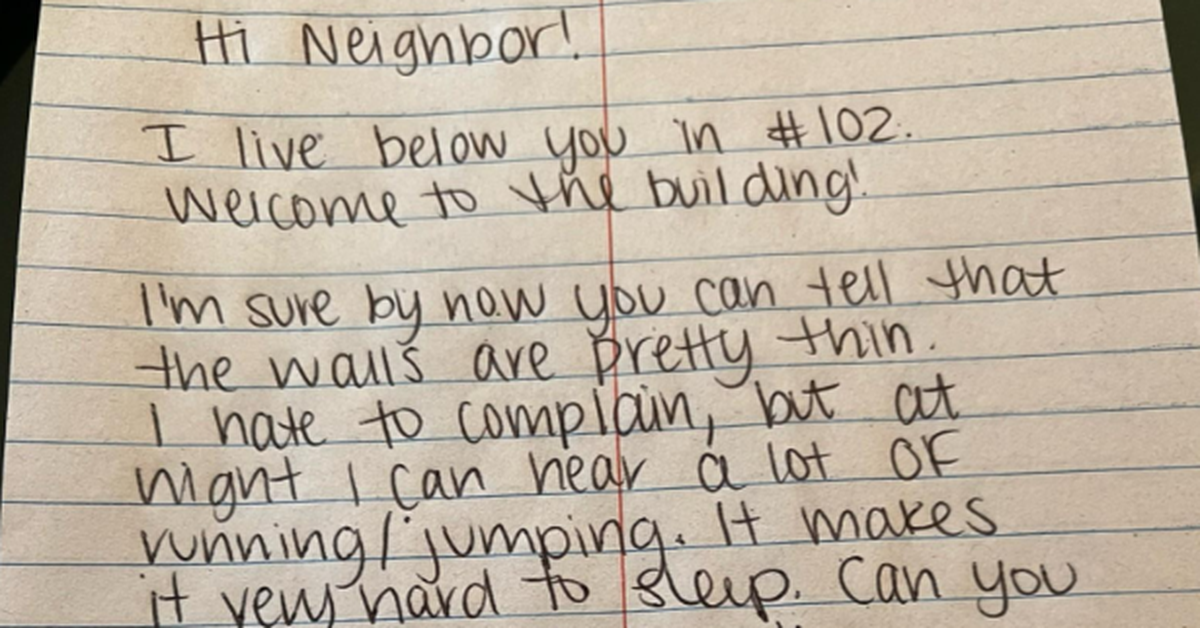 Hi Neighbor!
I live below you in #102.
Welcome to the building!
I'm sure by now you can tell that
the walls are pretty thin.
I hate to complain, but at
night I can hear a lot OF
running/jumping. It makes
it very hard to sleep. Can you